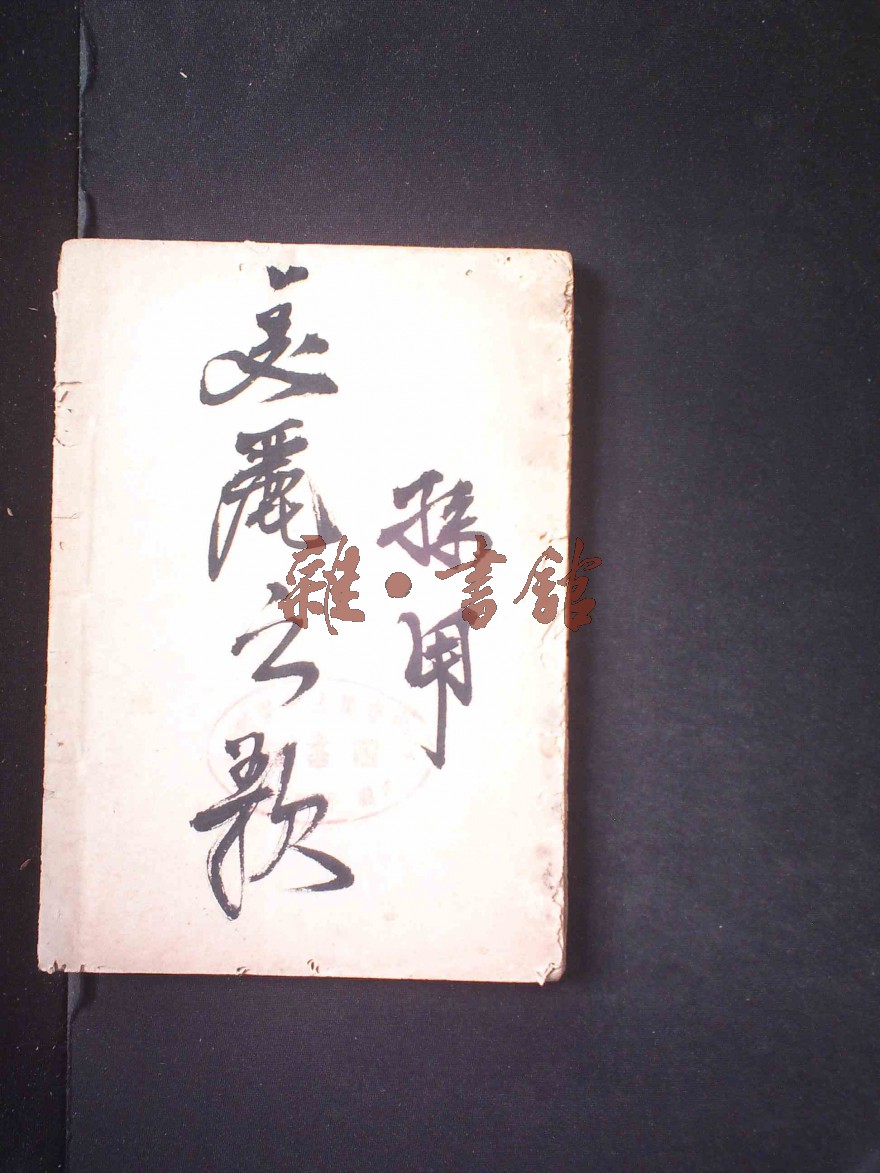 孫用
美麗之歌
雜·書館